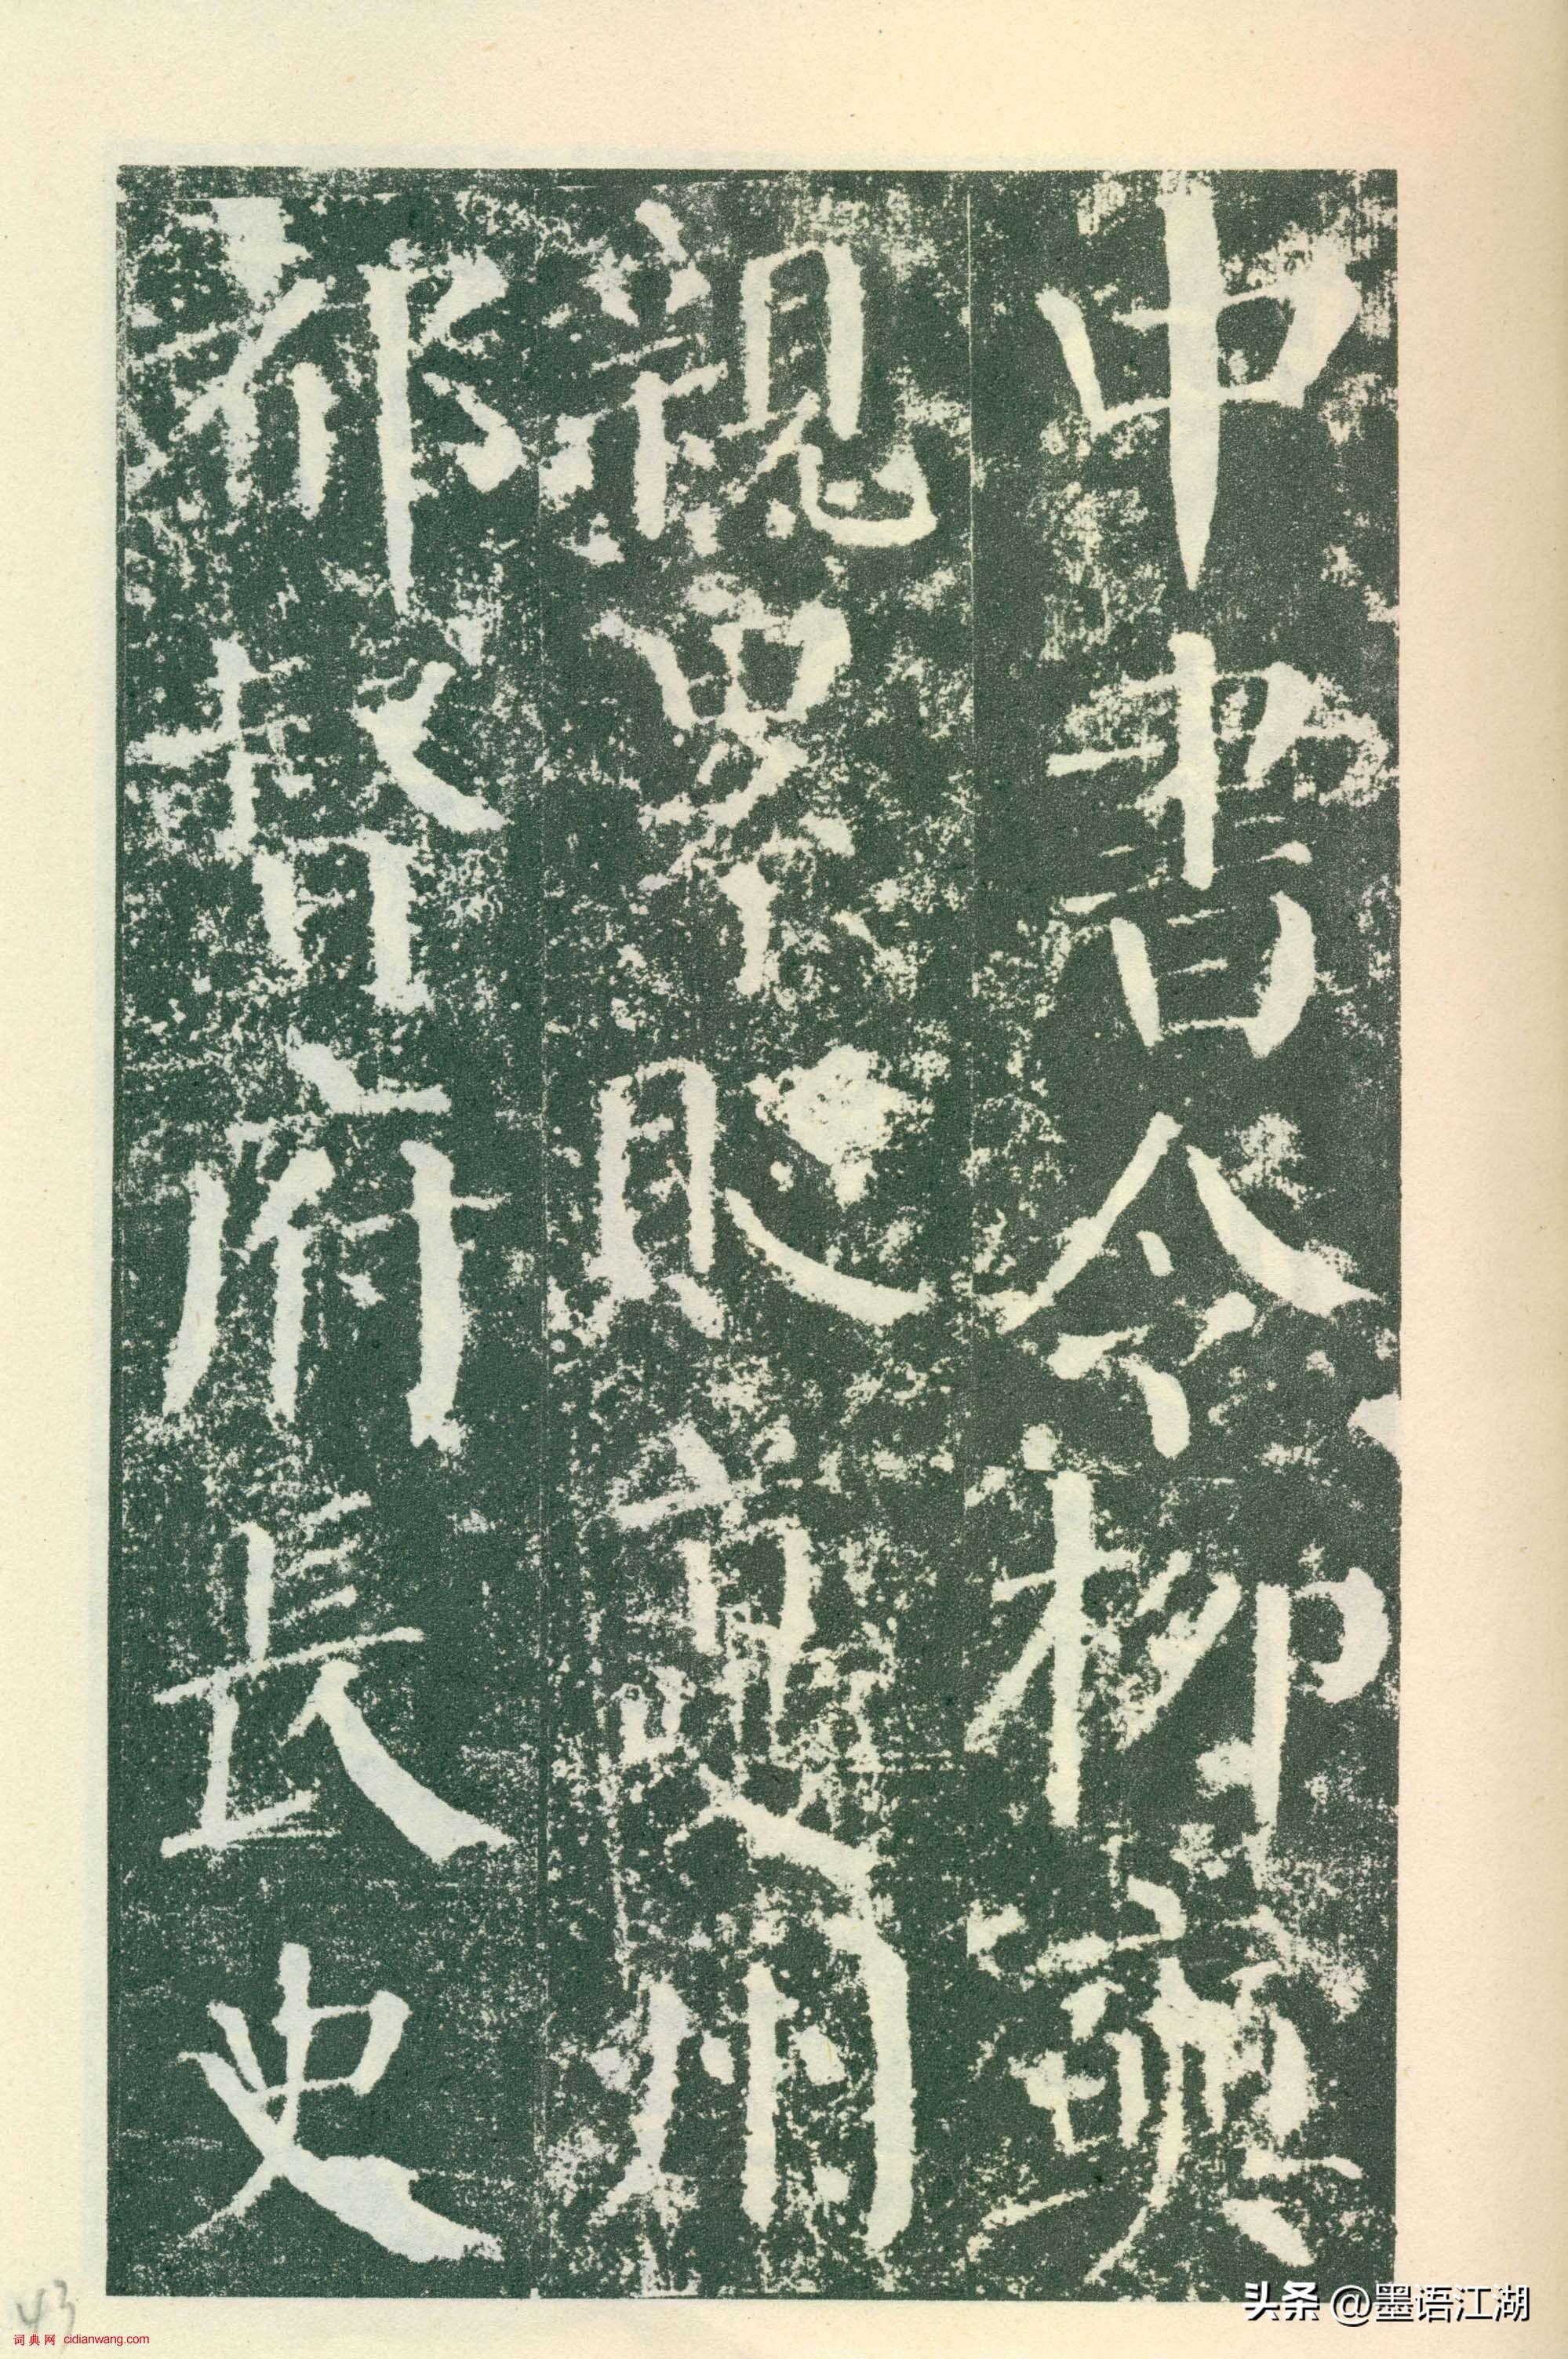 中書令柳奭
親累貶夔州
都督府長史
头条 @墨语江湖
词典网 cidianwang.com
43